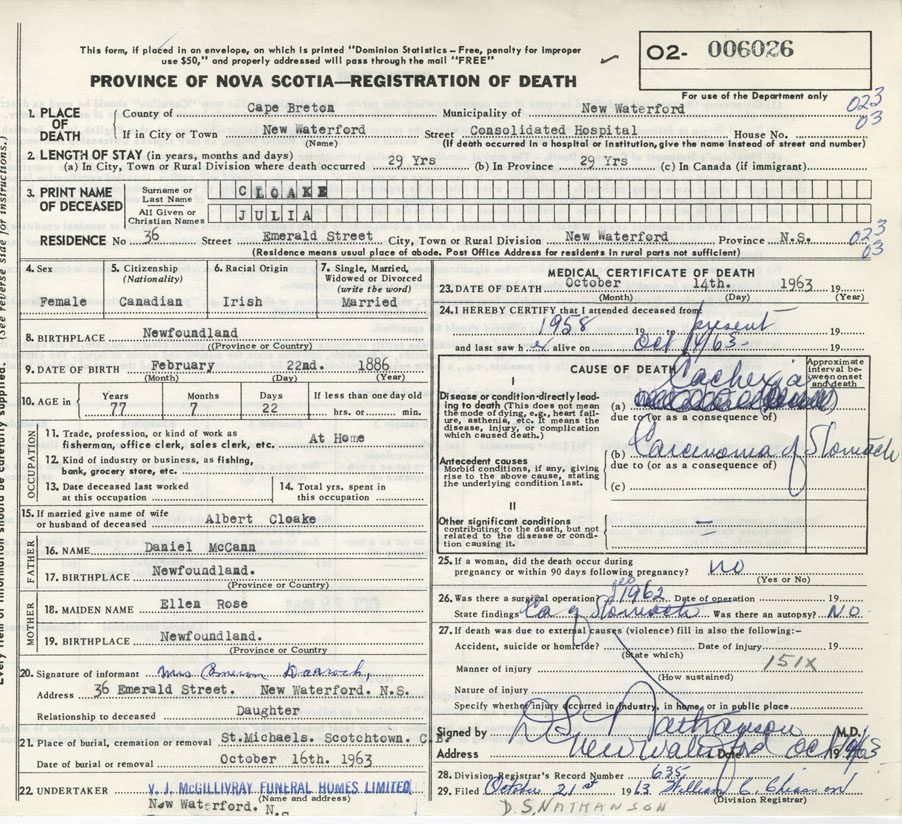 This form, if placed in an envelope, on which is printed "Dominion Statistics – Free, penalty for improper
use $50," and properly addressed will pass through the mail "FREE"
PROVINCE OF NOVA SCOTIA—REGISTRATION OF DEATH
02- 006026
For use of the Department only
023
03
1. PLACE OF DEATH
County of Cape Breton Municipality of New Waterford
If in City or Town New Waterford Street Consolidated Hospital House No.
(Name) (If death occurred in a hospital or institution, give the name instead of street and number)
2. LENGTH OF STAY (in years, months and days)
(a) In City, Town or Rural Division where death occurred 29 Yrs (b) In Province 29 Yrs (c) In Canada (if immigrant)
3. PRINT NAME OF DECEASED
Surname or Last Name CLOAKE
All Given or Christian Names JULIA
RESIDENCE No 36 Street Emerald Street City, Town or Rural Division New Waterford Province N.S.
023
03
(Residence means usual place of abode. Post Office Address for residents in rural parts not sufficient)
4. Sex Female
5. Citizenship (Nationality) Canadian
6. Racial Origin Irish
7. Single, Married, Widowed or Divorced (write the word) Married
8. BIRTHPLACE Newfoundland
((Province or Country)
9. DATE OF BIRTH February 22nd. 1886
(Month) (Day) (Year)
10. AGE in Years 77 Months 7 Days 22 If less than one day old hrs. or min.
OCCUPATION
11. Trade, profession, or kind of work as fisherman, office clerk, sales clerk, etc. At Home
12. Kind of industry or business, as fishing, bank, grocery store, etc.
13. Date deceased last worked at this occupation
14. Total yrs. spent in this occupation
15. If married give name of wife or husband of deceased Albert Cloake
FATHER
16. NAME Daniel McCann
17. BIRTHPLACE Newfoundland.
(Province or Country)
MOTHER
18. MAIDEN NAME Ellen Rose
19. BIRTHPLACE Newfoundland.
(Province or Country)
20. Signature of informant Mrs
Address 36 Emerald Street. New Waterford. N.S.
Relationship to deceased Daughter
21. Place of burial, cremation or removal St.Michaels. Scotchtown. C.B.
Date of burial or removal October 16th. 1963
22. UNDERTAKER V. J. McGILLIVRAY FUNERAL HOMES LIMITED
(Name and address)
New Waterford. N.
MEDICAL CERTIFICATE OF DEATH
23. DATE OF DEATH October 14th. 1963 19
(Month) (Day) (Year)
24. I HEREBY CERTIFY that I attended deceased from
1958 19 to present 19
and last saw h er alive on Oct 14/63 19
CAUSE OF DEATH
Approximate interval between onset and death
I
Disease or condition-directly leading to death (This does not mean the mode of dying, e.g., heart failure, asthenia, etc. It means the disease, injury, or complication which caused death.)
(a) Cachexia
due to (or as a consequence of)
Antecedent causes
Morbid conditions, if any, giving rise to the above cause, stating the underlying condition last.
(b) Carcinoma of Stomach
due to (or as a consequence of)
(c)
II
Other significant conditions contributing to the death, but not related to the disease or condition causing it. –
25. If a woman, did the death occur during
pregnancy or within 90 days following pregnancy? no
(Yes or No)
26. Was there a surgical operation? yes 1962 Date of operation 19
State findings Ca of Stomach Was there an autopsy? NO
27. If death was due to external causes (violence) fill in also the following:–
Accident, suicide or homicide? Date of injury 19
(State which)
151X
Manner of injury
(How sustained)
Nature of injury
Specify whether injury occurred in industry, in home, or in public place
Signed by D S Nathanson M.D.
Address New Waterford Date Oct 14/63 19
28. Division Registrar's Record Number 635
29. Filed October 21st 1963 William C. Chiasson
(Division Registrar)
D.S. NATHANSON
(See reverse side for instructions.)